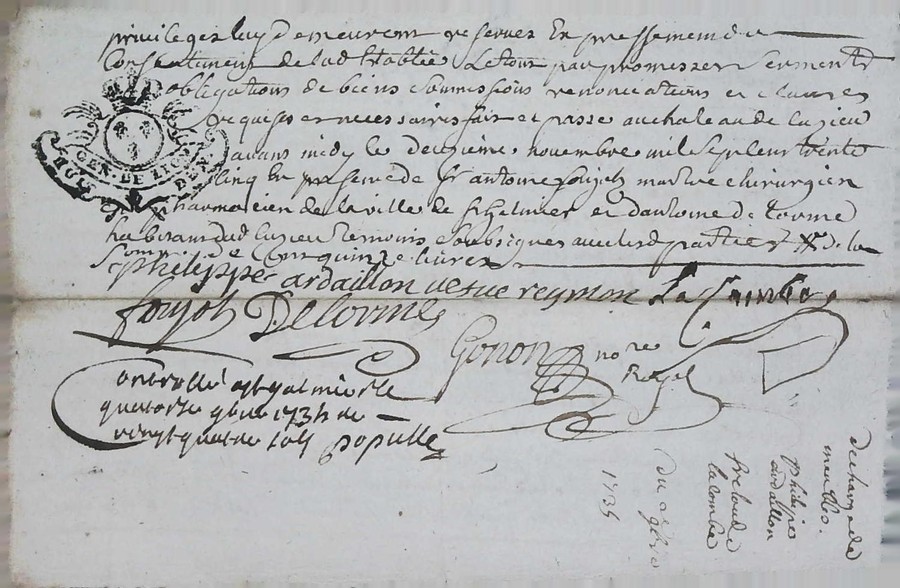 privileges luy demeurent reserves Expressement du
Consentement de lad Establie Le tout par promesses serments
obligations de biens soumissions renonciations et clauses
requises et necessaires fait et passé au chateau de Luzieu
avant midy le deuzieme novembre mil sept cent trente
cinq En presence de sr antoine foujols maitre chirurgien
pharmacien de la ville de st helmier et d'antoine de lorme
habitant dud Luzieu temoins soubsignes avec lesd parties de la
somme de Cent quinze livres
philippe ardaillon vesue reymon La Combe
foujols Delorme
Gonon nore Royal
Controllé a st galmier le
quatorze 9bre 1735 re
vingt quatre sols populle
GEN. DE LION
decharge de
meubles
philipe
ardaillon
lacombe
du 2 9bre
1735